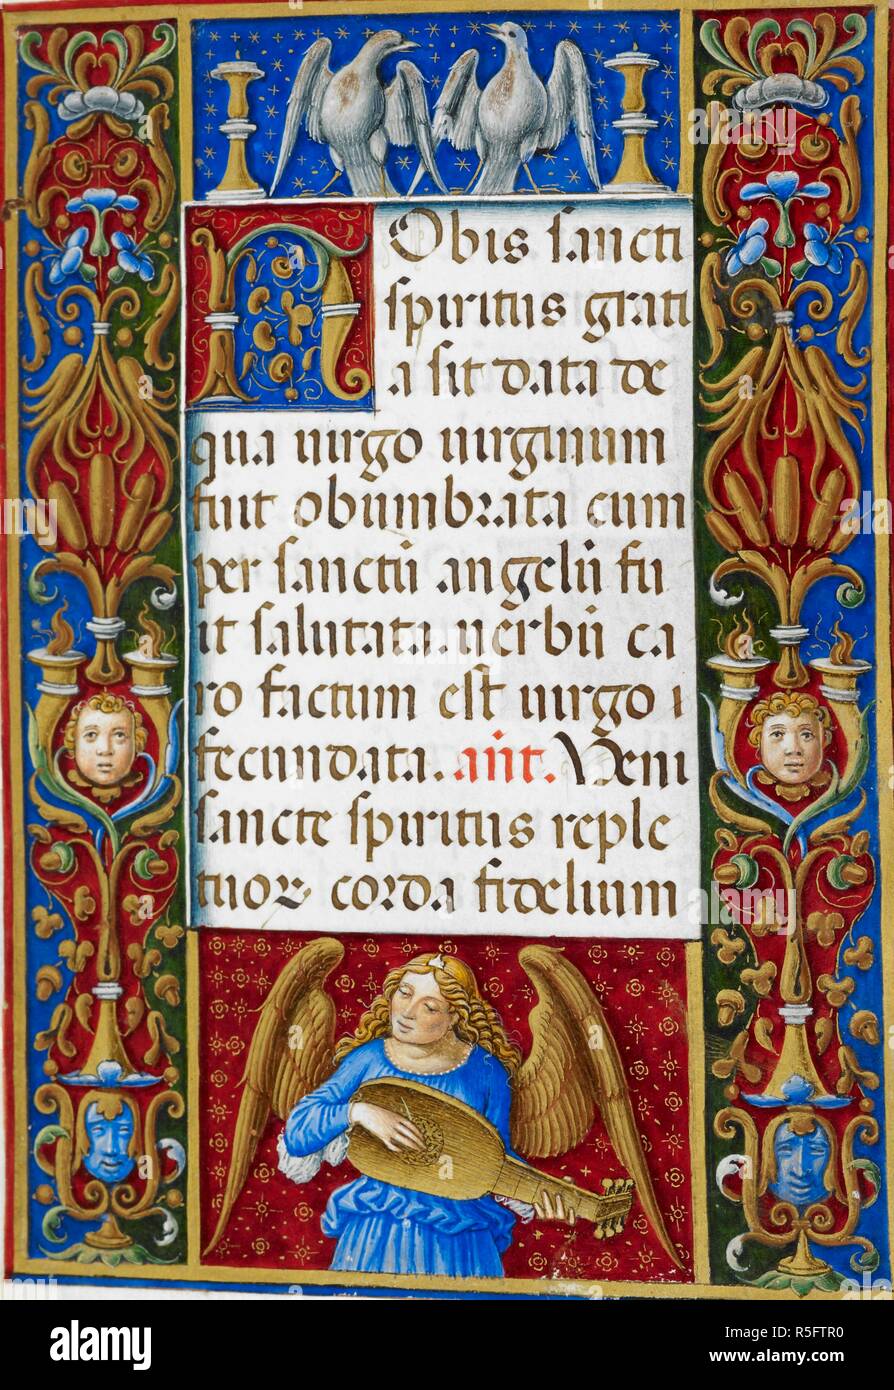 Nobis sancti
spiritus grati
a sit data de
qua uirgo uirginum
fuit obumbrata cum
per sanctū angelū fu
it salutata. uerbū ca
ro factum est uirgo i
fecundata. añt. Veni
sancte spiritus reple
tuoꝝ corda fidelium
alamy
alamy
Image ID: R5FTR0
www.alamy.com